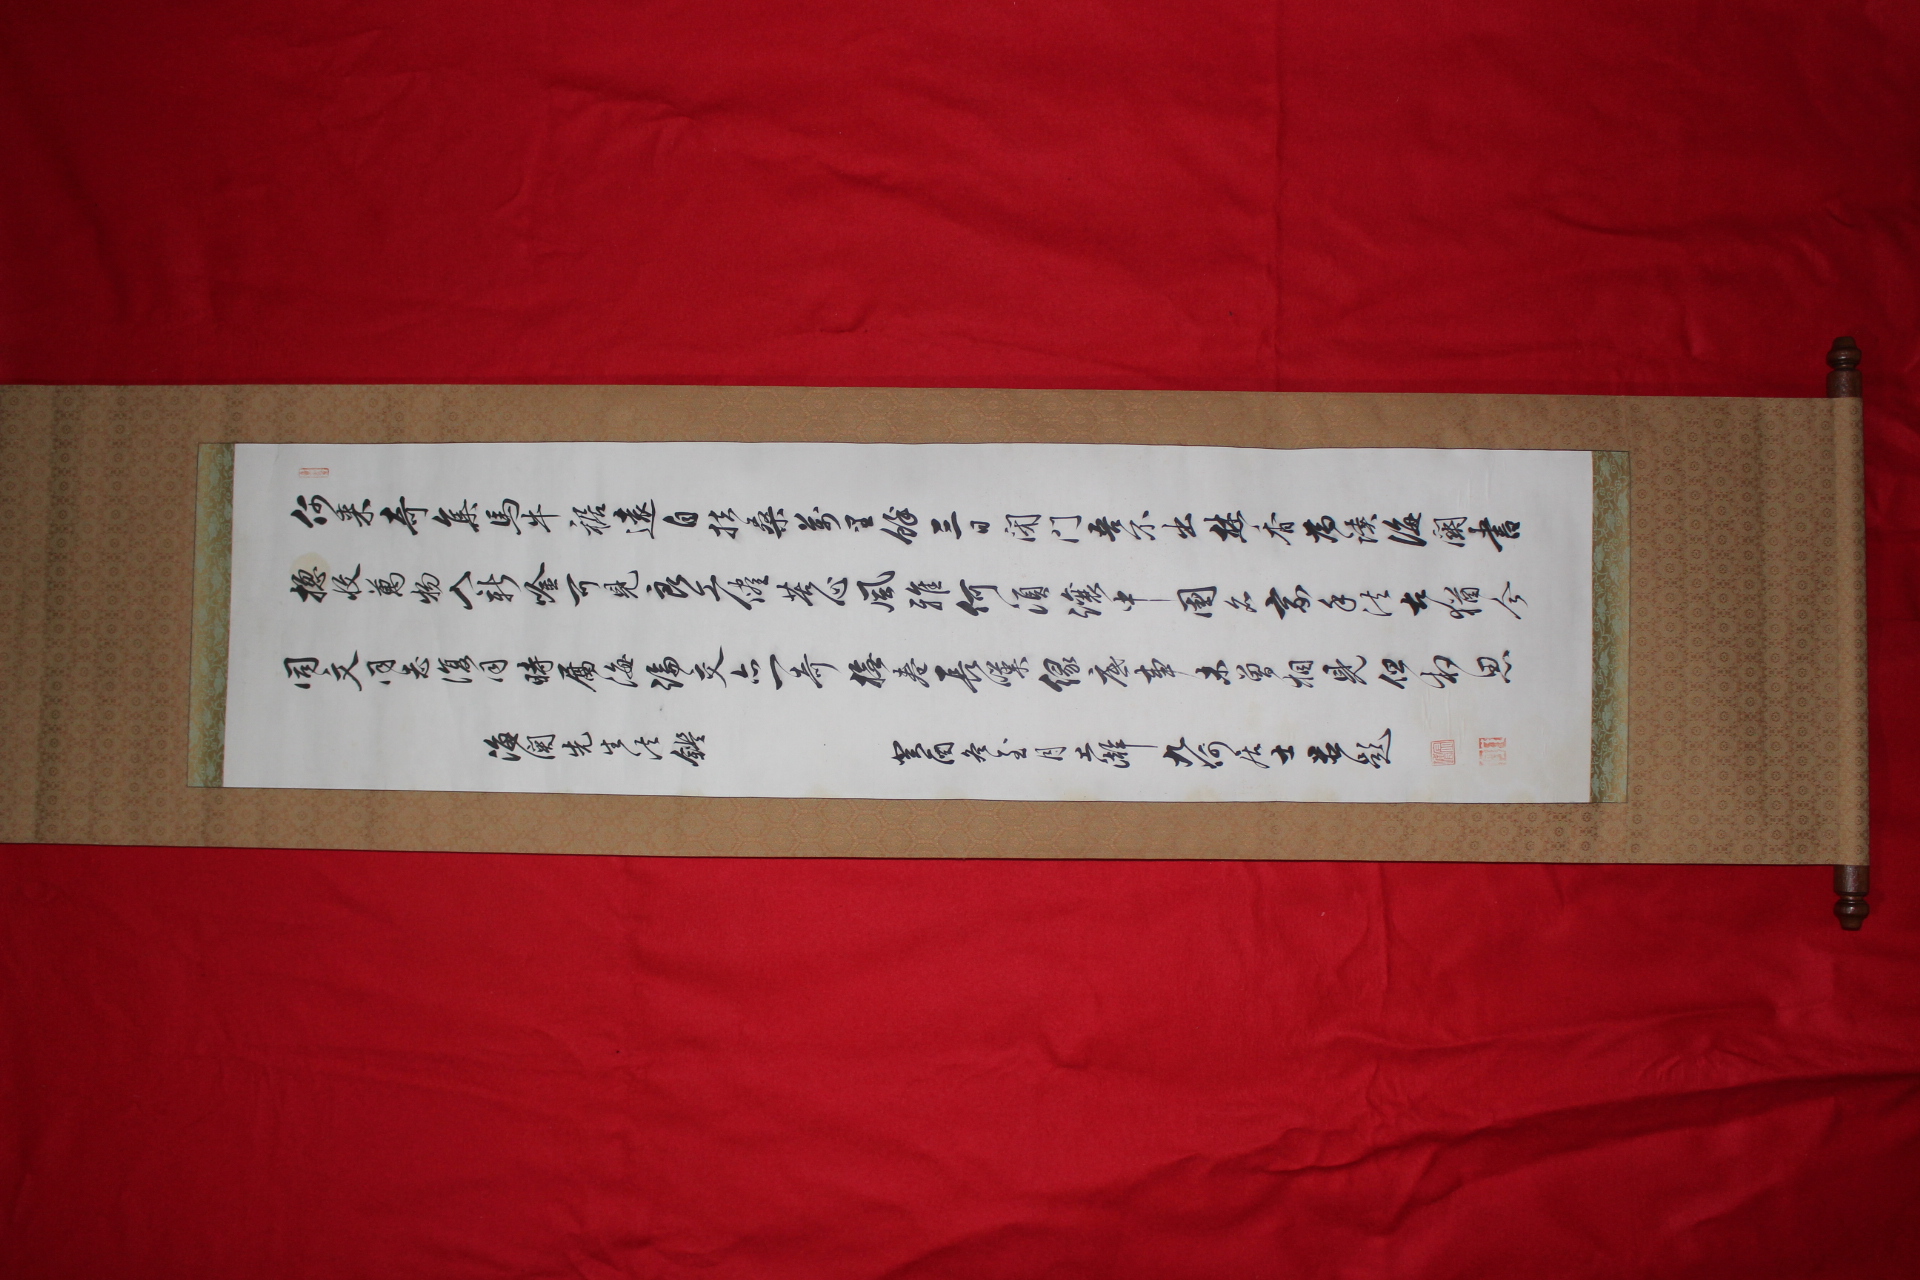 何来奇集馬牛裾遠自扶桑萬里餘三日閉門吾不出焚香為讀海闗書
摠收萬物入新唫可見良工儘苦心風雅何須讓中國名家手法古猶今
同文同志復同時屬海論交亦一奇撫卷長嘆緣底事未曾相見但相思
海関先生法鑑
癸酉冬至月上澣 九 居士 題